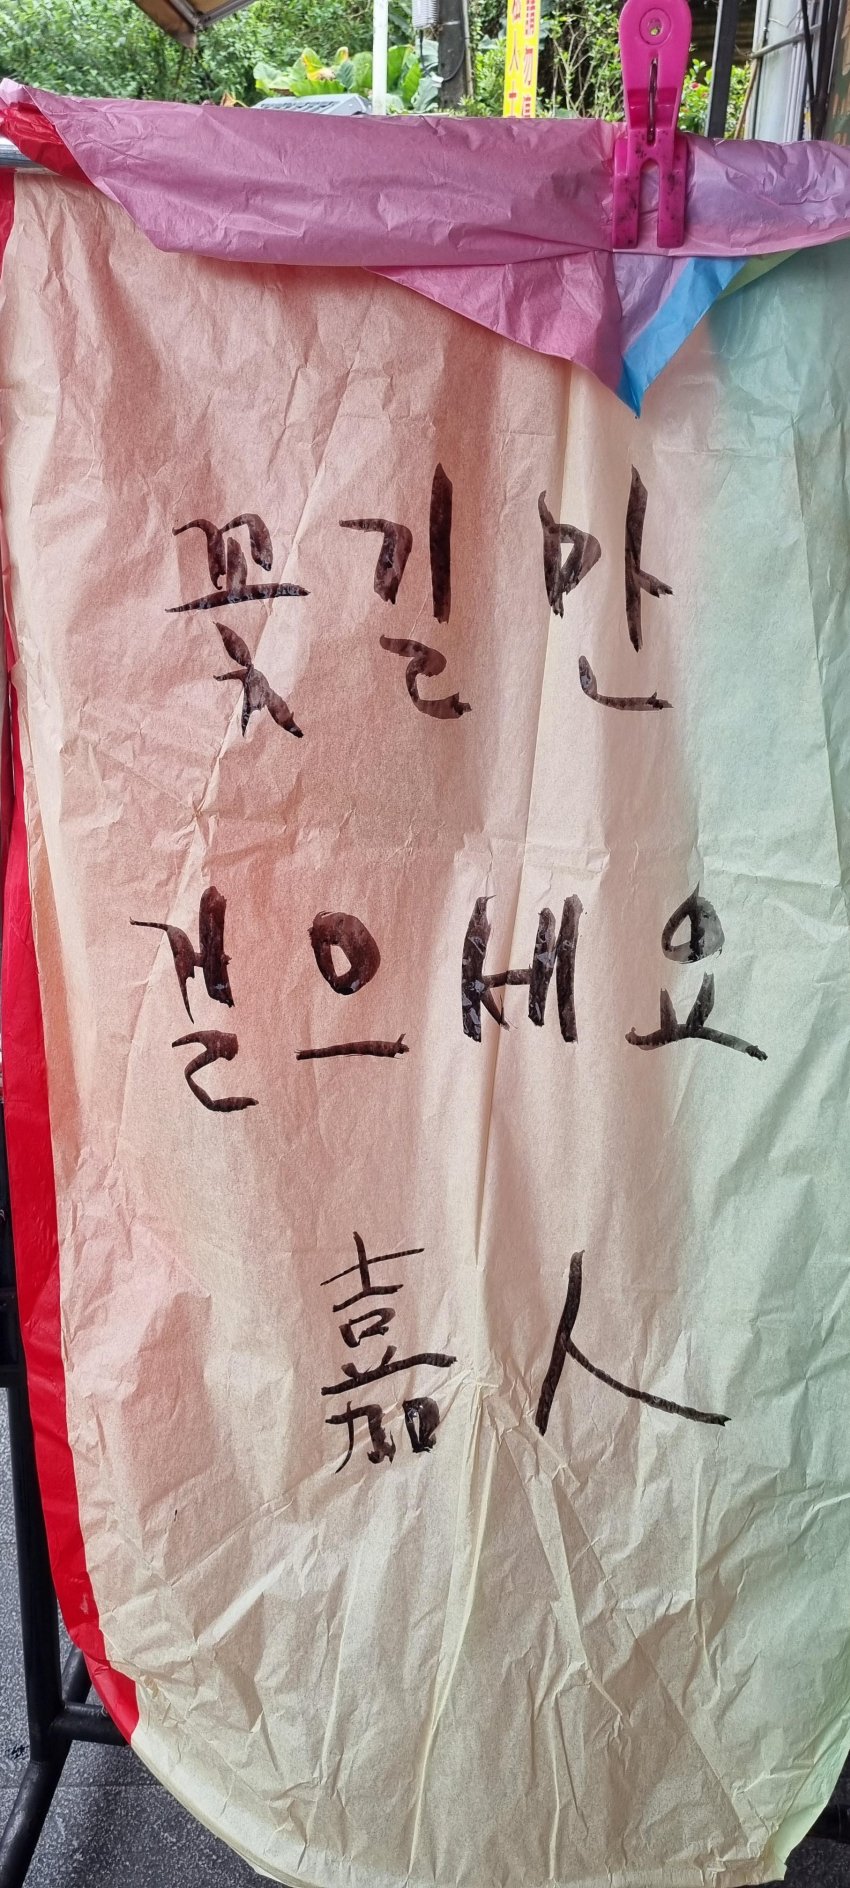 꽃길만
걸으세요
嘉人